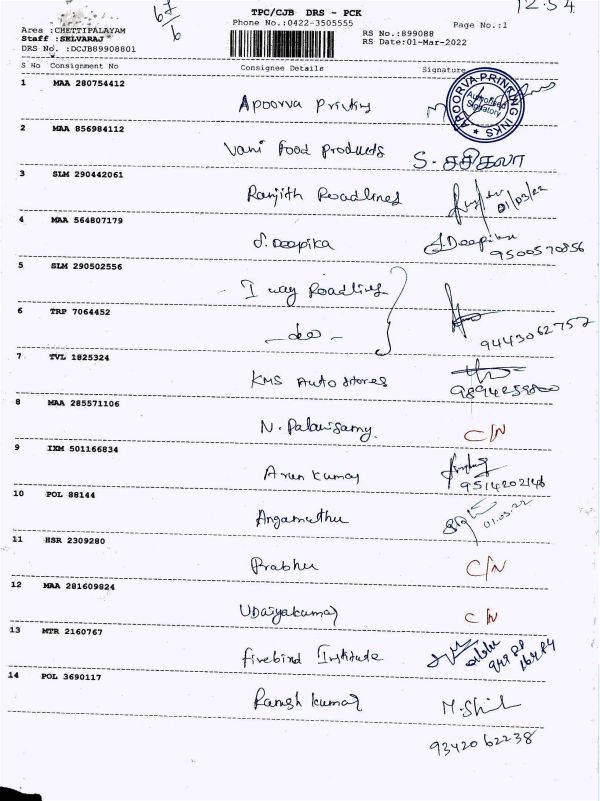 12:54
67/6
TPC/CJB DRS - PCK
Phone No.:0422-3505555
Page No.:1
Area :CHETTIPALAYAM
Staff :SELVARAJ
DRS No. :DCJB89908801
RS No.:899088
RS Date:01-Mar-2022
S No Consignment No Consignee Details Signature
1 MAA 280754412 Apoorva Printing
APOORVA PRINTING INKS
Authorised Signatory
2 MAA 856984112 Vani Food Products S. சசிகலா
3 SLM 290442061 Ranjith Roadlines 01/03/22
4 MAA 564807179 S. Deepika S. Deepika
9500570856
5 SLM 290502556 I way Roadlines
6 TRP 7064452 - do - 9443062752
7 TVL 1825324 KMS Auto Stores 9894259800
8 MAA 285571106 N. Palanisamy C/N
9 IXM 501166834 Arun Kumar 9514202146
10 POL 88144 Angamuthu 01.03.22
11 HSR 2309280 Prabhu C/N
12 MAA 281609824 Udaiyakumar C/N
13 MTR 2160767 Firebird Institute
14 POL 3690117 Ramesh kumar
9342062238